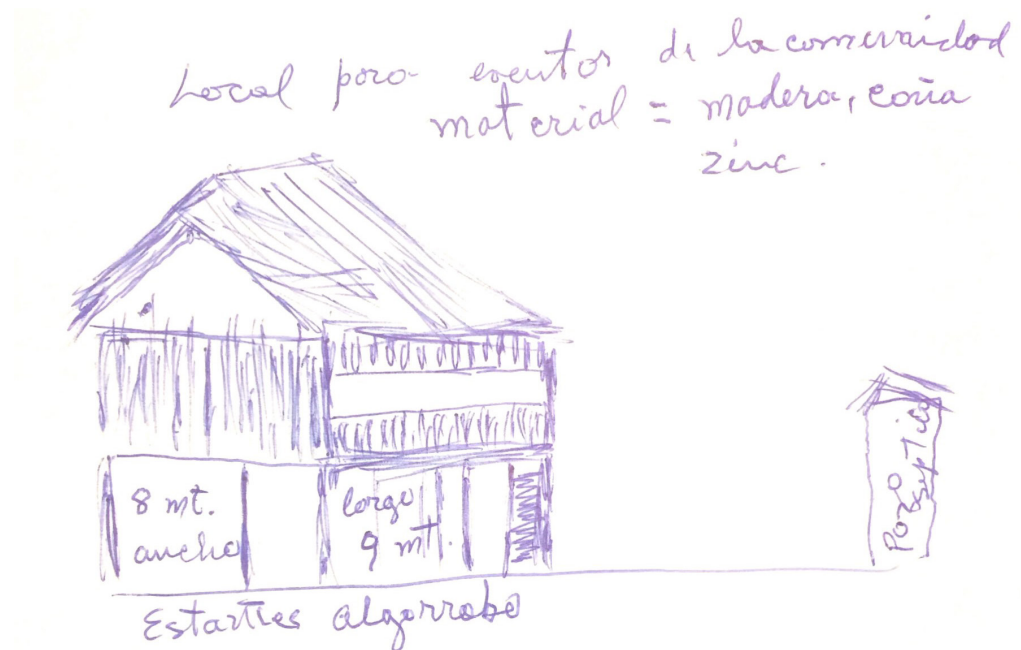 Local para eventos de la comunidad
material = madera, caña
zinc.
8 mt.
ancho
largo
9 mt.
Pozo
septico
Estantes algorrobo